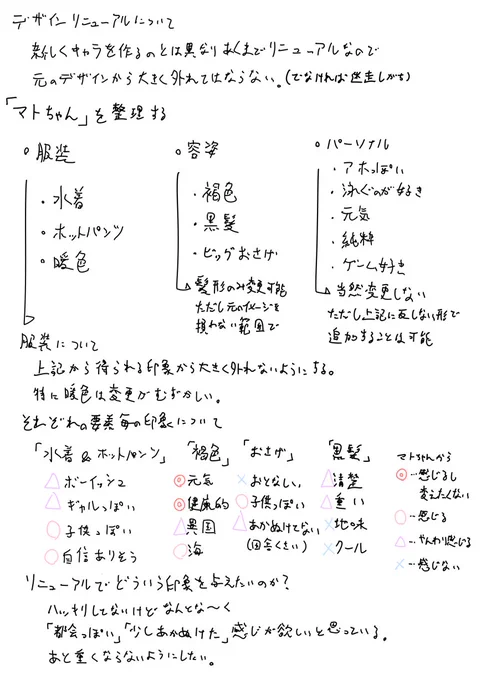 デザインリニューアルについて
新しくキャラを作るのとは異なりあくまでリニューアルなので
元のデザインから大きく外れてはならない。(でなければ迷走しがち)
「マトちゃん」を整理する
○服装
・水着
・ホットパンツ
・暖色
○容姿
・褐色
・黒髪
・ビッグおさげ
髪形のみ変更可能
ただし元のイメージを
損わない範囲で
○パーソナル
・アホっぽい
・泳ぐのが好き
・元気
・純粋
・ゲーム好き
当然変更しない
ただし上記に反しない形で
追加することは可能
服装について
上記から得られる印象から大きく外れないようにする。
特に暖色は変更がむずかしい。
それぞれの要素毎の印象について
「水着&ホットパンツ」
△ボーイッシュ
△ギャルっぽい
○子供っぽい
○自信ありそう
「褐色」
◎元気
◎健康的
△異国
○海
「おさげ」
×おとなしい
○子供っぽい
△あかぬけてない
(田舎くさい)
「黒髪」
△清楚
△重い
×地味
×クール
マトちゃんから
◎…感じるし
変えたくない
○…感じる
△…やんわり感じる
×…感じない
リニューアルでどういう印象を与えたいのか?
ハッキリしてないけどなんとな〜く
「都会っぽい」「少しあかぬけた」感じが欲しいと思っている。
あと重くならないようにしたい。